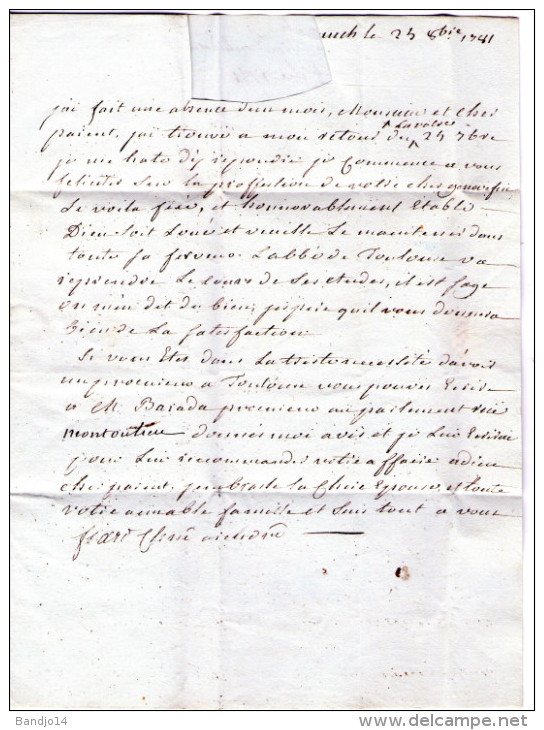 auch le 25 8bre 1781
j'ai fait une absence d'un mois, Monsieur et cher
parent, j'ai trouvé a mon retour La votre du 25 7bre
je me hate d'y repondre je Commence a vous
feliciter sur la proffession de votre cher
Le voila fixé, et honnorablement Etabli
Dieu soit Loué et veuille Le maintenir dans
toute sa ferveur L'abbé de Toulouse va
reprendre Le Cours de Ses etudes, il est sage
on m'en dit du bien, j'espere quil vous donnera
bien de La satisfaction.
Si vous Etes dans La triste necessité d'avoir
un procureur a Toulouse vous pouvez Ecrire
a Mr Barada procureur au parlement rue
montoulieu donnes moi avis et je Lui Ecrirai
pour Lui recommander votre affaire adieu
cher parent j'embrasse La Chere Epouse et toute
votre aimable famille et suis tout a vous
Bandjo14
www.delcampe.net